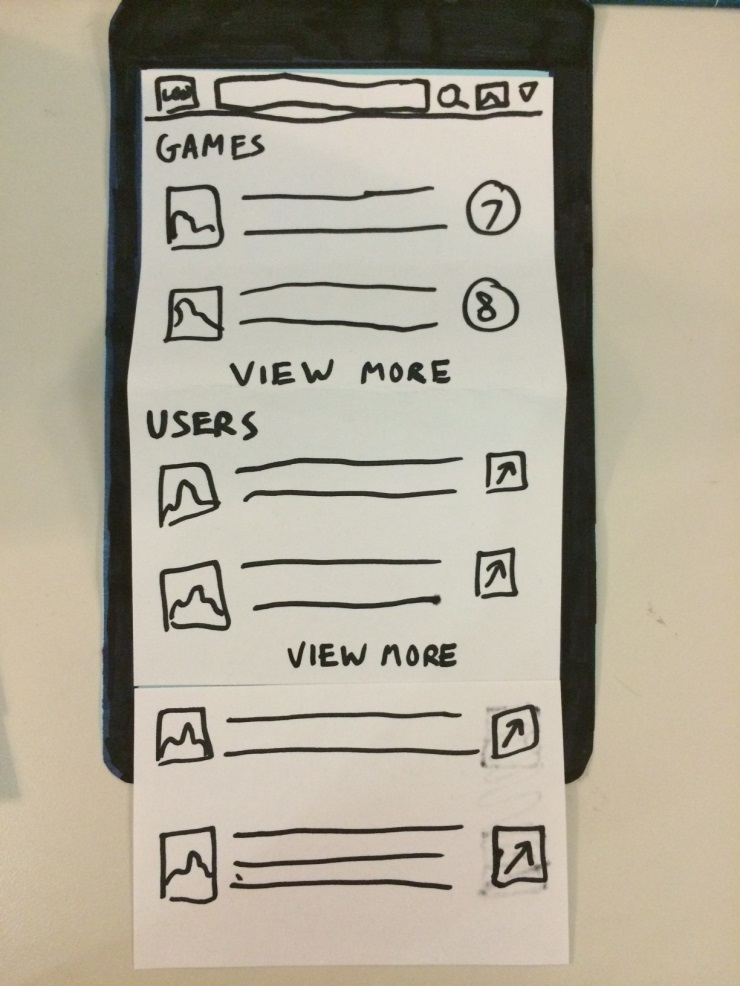 GAMES
7
8
VIEW MORE
USERS
VIEW MORE